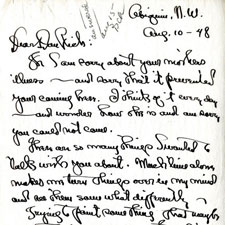 Abiquiu, N.M.
Aug. 10 - 48
Dear Dan Rich:
I am sorry about your mothers
illness — and sorry that it prevented
your coming here. I think of it every day
— and wonder how she is and am sorry
you could not come.
There are so many things I wanted to
talk with you about. Much time alone
makes me turn things over in my mind
and see them somewhat differently —
Trying to paint something that maybe